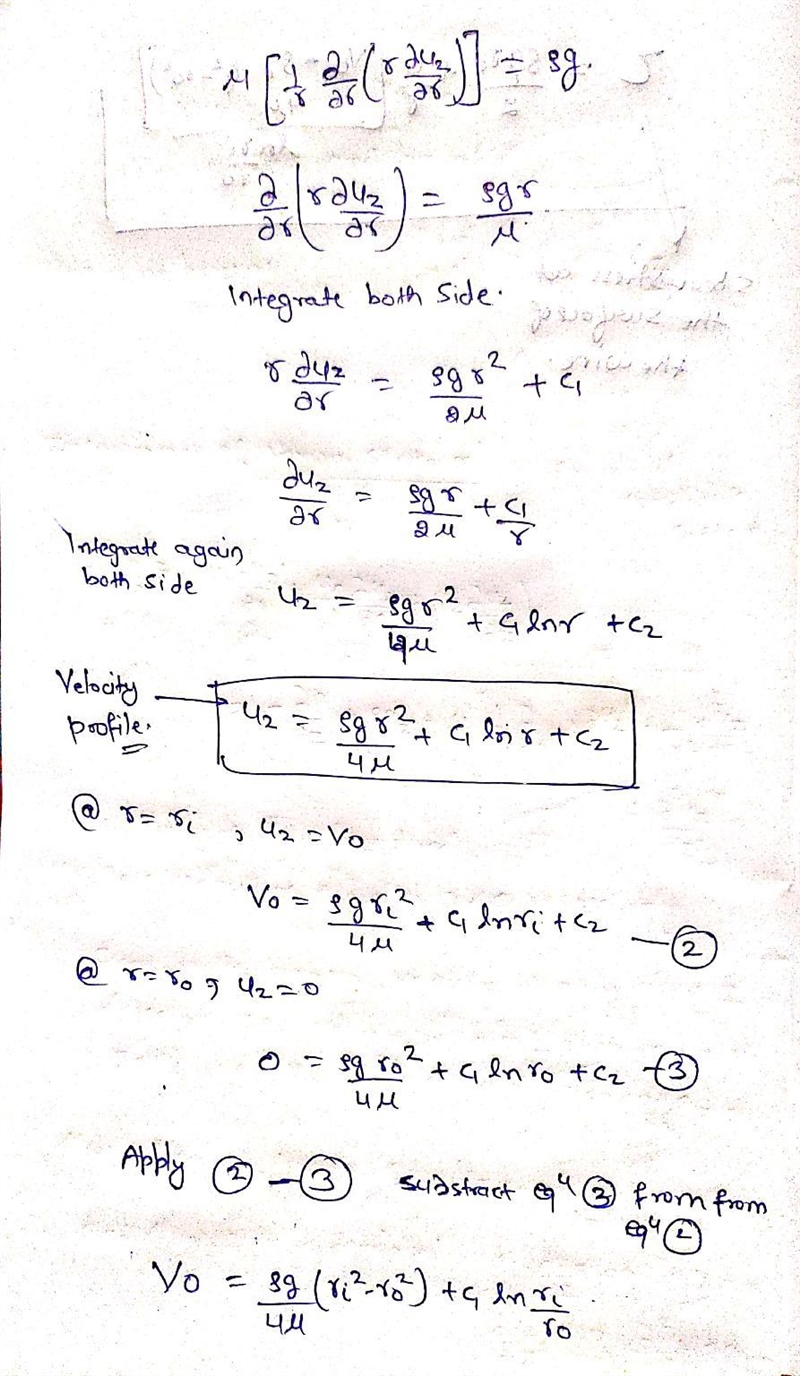 μ [ 1/r ∂/∂r ( r ∂uz/∂r ) ] = ρg.
∂/∂r ( r ∂uz/∂r ) = ρgr/μ.
Integrate both side.
r ∂uz/∂r = ρgr²/2μ + c₁
∂uz/∂r = ρgr/2μ + c₁/r
Integrate again
both side
uz = ρgr²/4μ + c₁ lnr + c₂
Velocity
profile.
uz = ρgr²/4μ + c₁ ln r + c₂
@ r = ri , uz = V₀
V₀ = ρgri²/4μ + c₁ lnri + c₂ — ②
@ r = r₀ , uz = 0
0 = ρgr₀²/4μ + c₁ ln r₀ + c₂ — ③
Apply ② — ③ substract eqⁿ ③ from from
eqⁿ ②
V₀ = ρg/4μ (ri² - r₀²) + c₁ ln ri/r₀